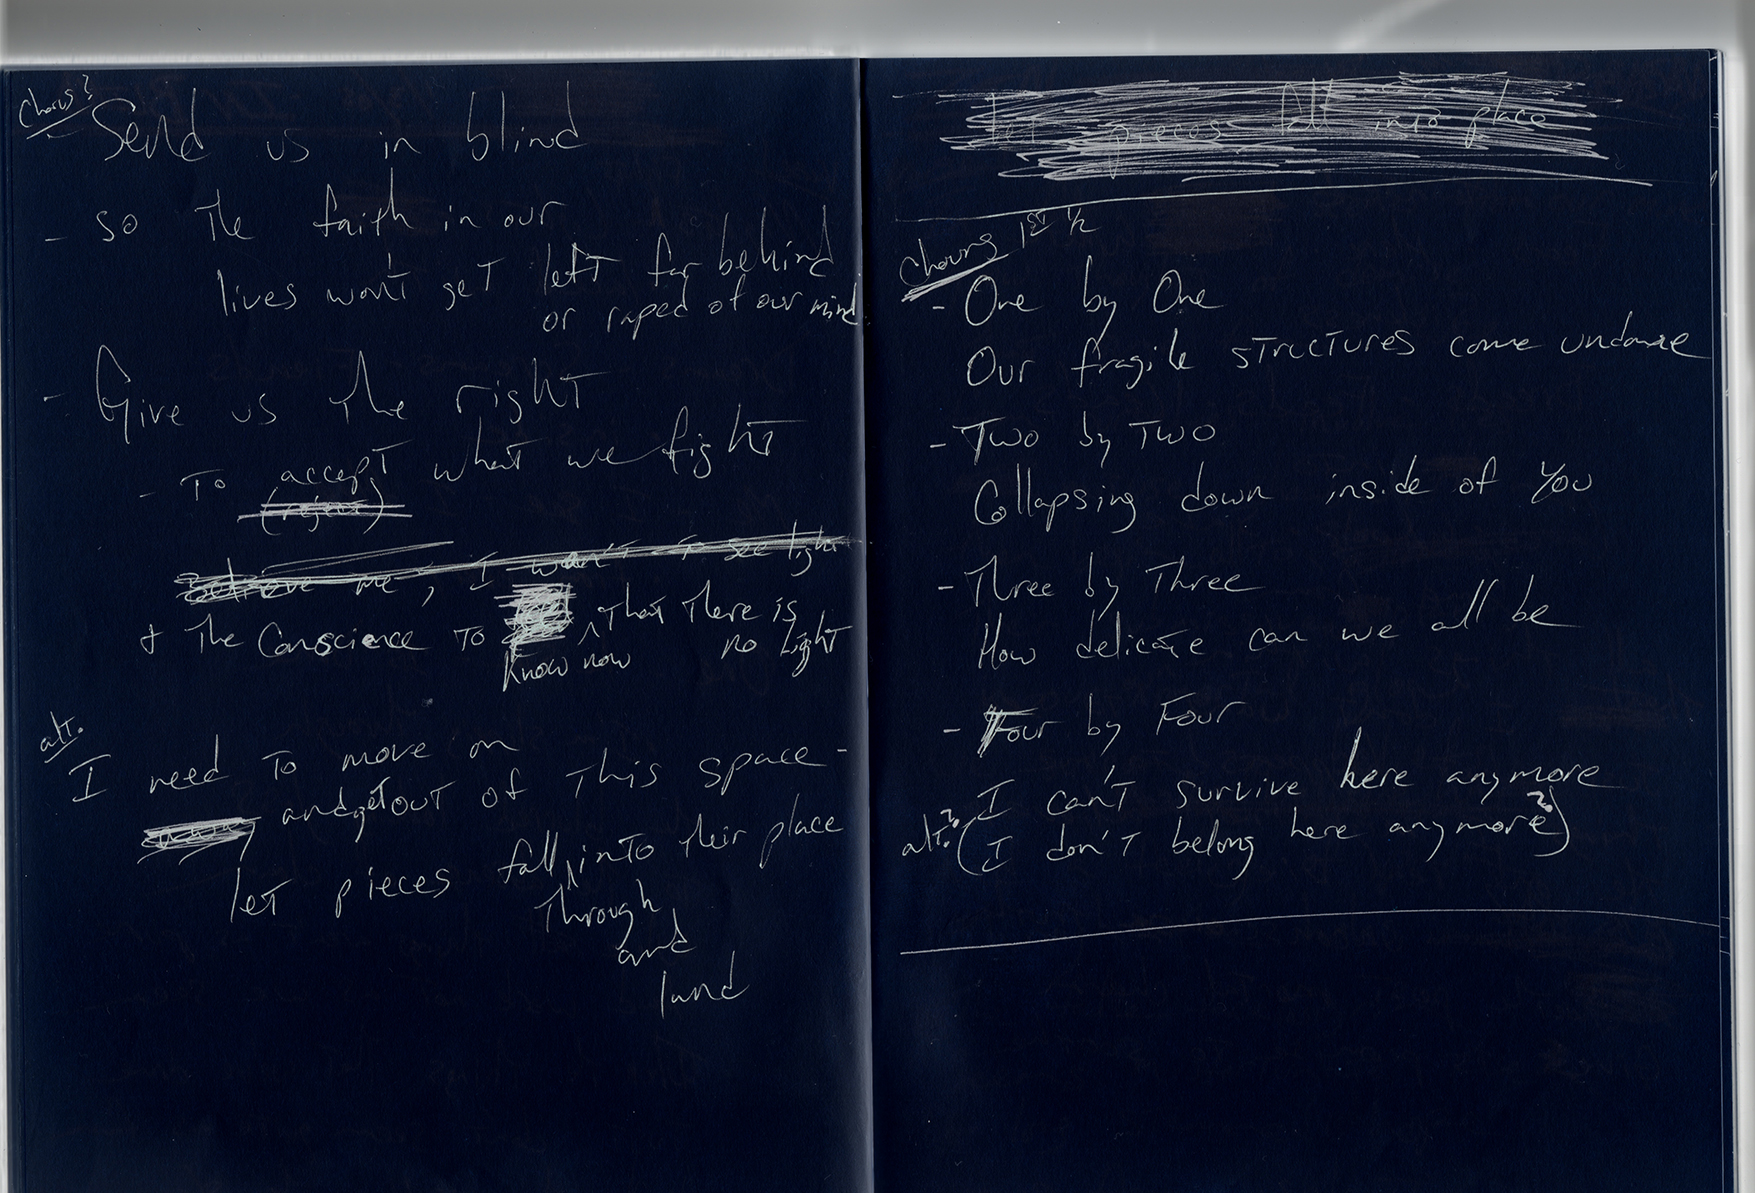 Chorus?
- Send us in blind
- so the faith in our
lives won't get left far behind
or raped of our mind
- Give us the right
- To accept what we fight
(reject)
Believe me, I want to see light
+ The Conscience to ^ that there is
know now no light
alt.
I need to move on
and get out of this space -
let pieces fall ^ into their place
Through
and
land
let pieces fall into place
Chorus 1st 1/2
- One by One
Our fragile structures come undone
- Two by Two
Collapsing down inside of You
- Three by Three
How delicate can we all be
- Four by Four
I can't survive here anymore
alt.? (I don't belong here anymore?)